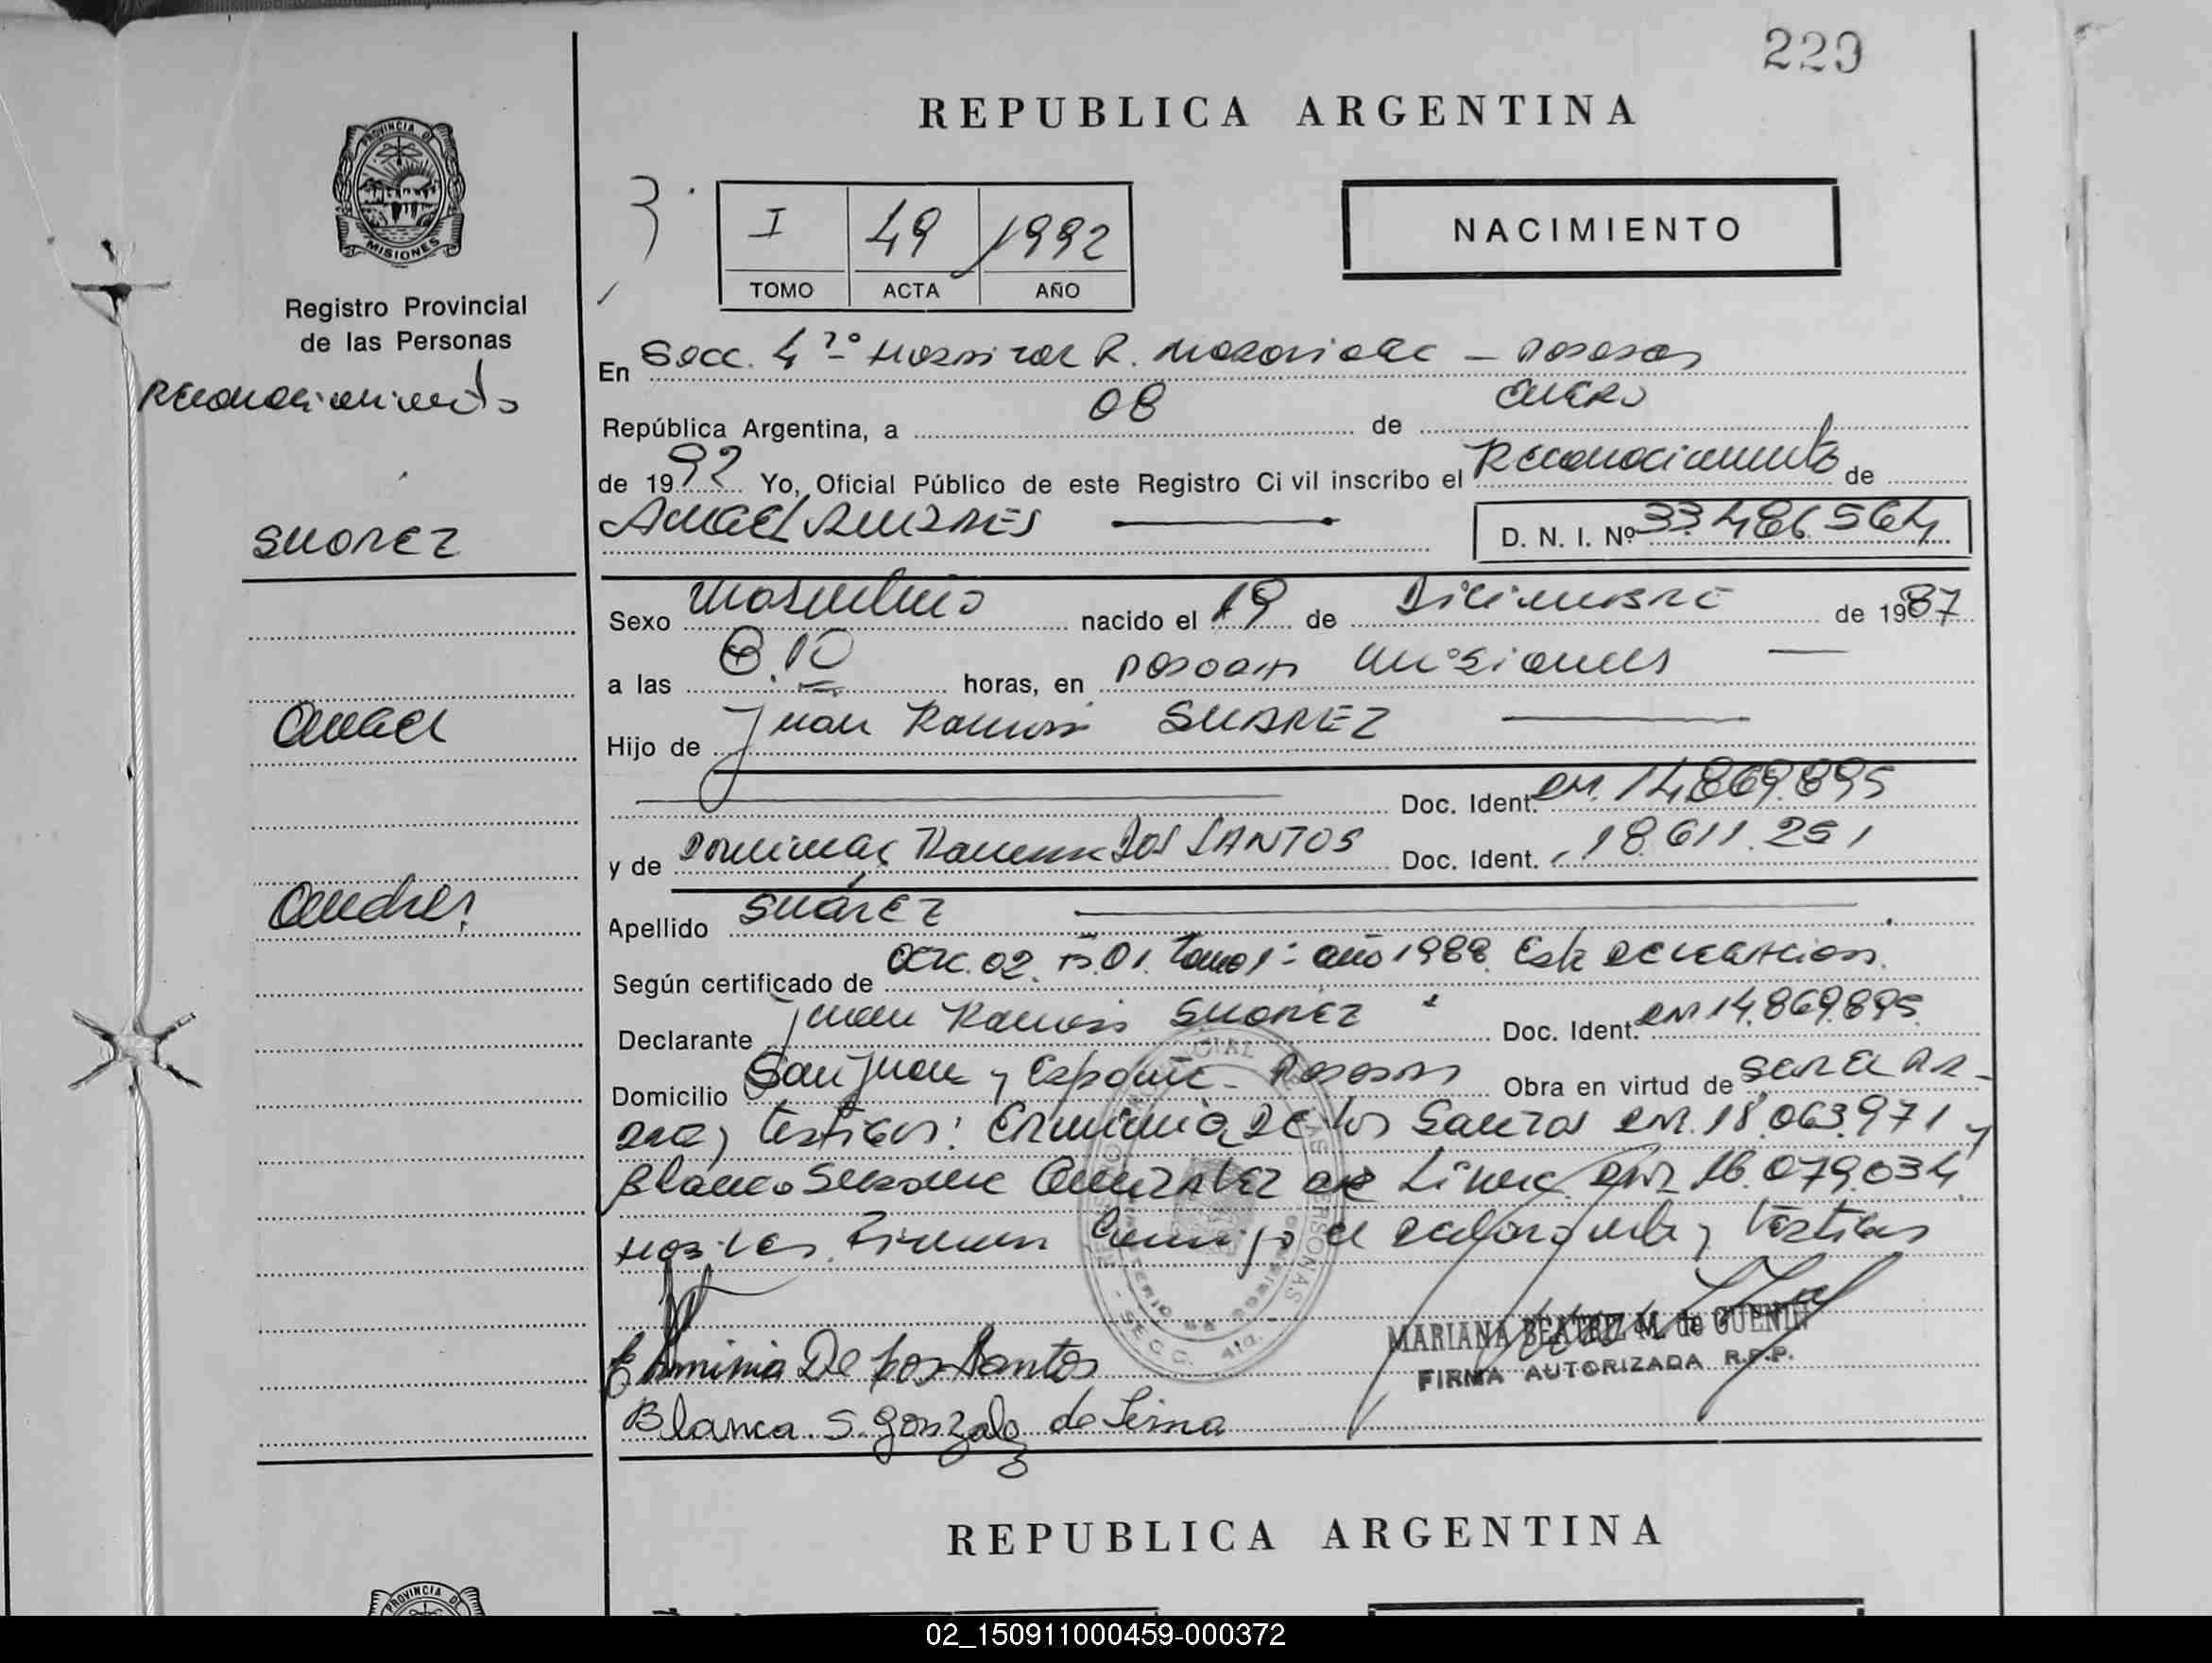 229
REPUBLICA ARGENTINA
PROVINCIA DE
MISIONES
I 49 1992
TOMO ACTA AÑO
NACIMIENTO
Registro Provincial
de las Personas
Reconocimiento
En Secc. 4 Hospital R. Madariaga - Posadas
República Argentina, a 08 de Enero
de 1992 Yo, Oficial Público de este Registro Civil inscribo el Reconocimiento de
Angel Andres
D. N. I. Nº 33.486.564
SUAREZ
Sexo Masculino nacido el 19 de Diciembre de 1987
a las 8.10 horas, en Posadas Misiones
Angel
Hijo de Juan Ramon SUAREZ
Doc. Ident. DNI. 14.869.895
y de Dominga Ramona DOS SANTOS Doc. Ident. 18.611.251
Andres
Apellido SUÁREZ
Según certificado de Acta. 02. Tº. 01. Tomo 1º año 1988. Esta Delegacion.
Declarante Juan Ramon SUAREZ Doc. Ident. DNI 14.869.895
Domicilio San Juan y - Posadas Obra en virtud de ser el Pa-
dre, testigos: Erminia De los Santos DNI. 18.063.971 y
Blanca Susana Gonzalez de Lima DNI 16.079.034
Firman Conmigo el declarante y testigos
Erminia De Los Santos
MARIANA BEATRIZ M. de GUENIN
FIRMA AUTORIZADA R.P.P.
Blanca. S. Gonzalez de Lima
REPUBLICA ARGENTINA
PROVINCIA DE
02_150911000459-000372